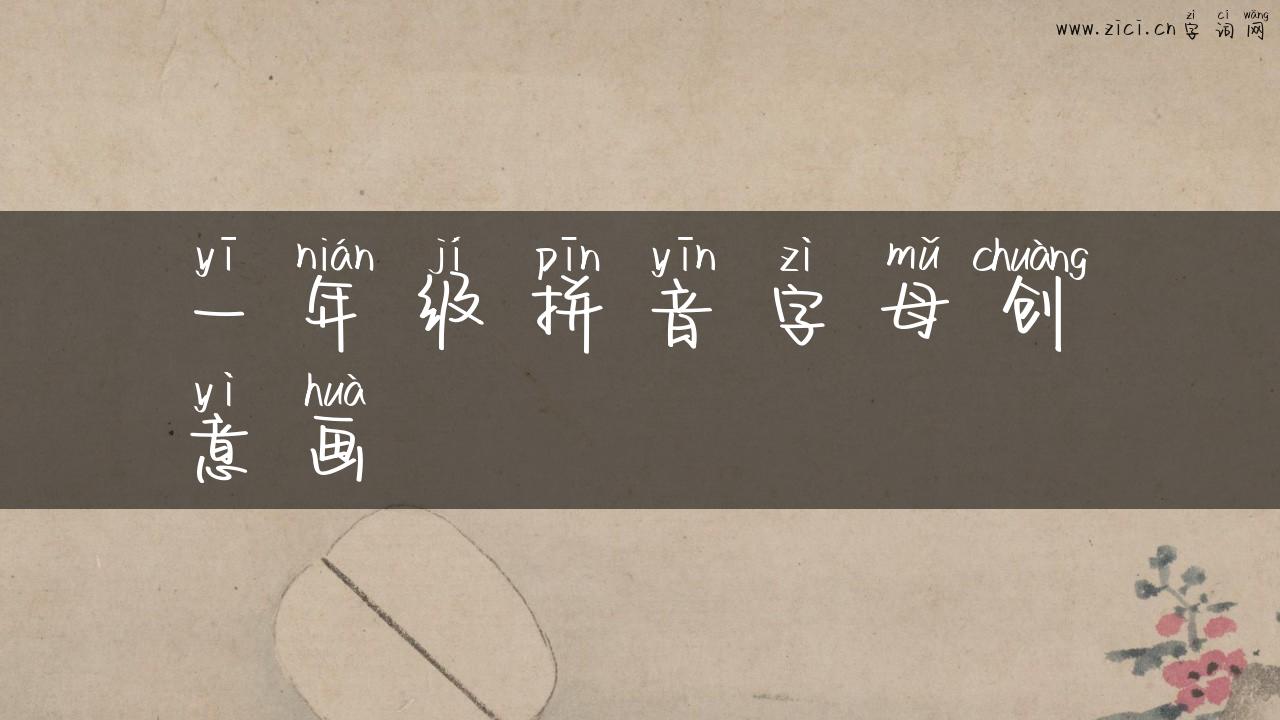 zì cí wǎng
www.zici.cn 字词网
yī nián jí pīn yīn zì mǔ chuàng
一年级拼音字母创
yì huà
意画